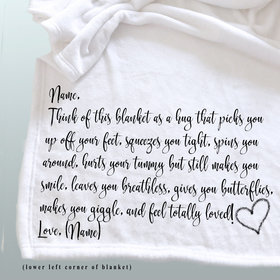 Name,
Think of this blanket as a hug that picks you
up off your feet, squeezes you tight, spins you
around, hurts your tummy but still makes you
smile, leaves you breathless, gives you butterflies,
makes you giggle, and feel totally loved!
Love, (Name)
(lower left corner of blanket)